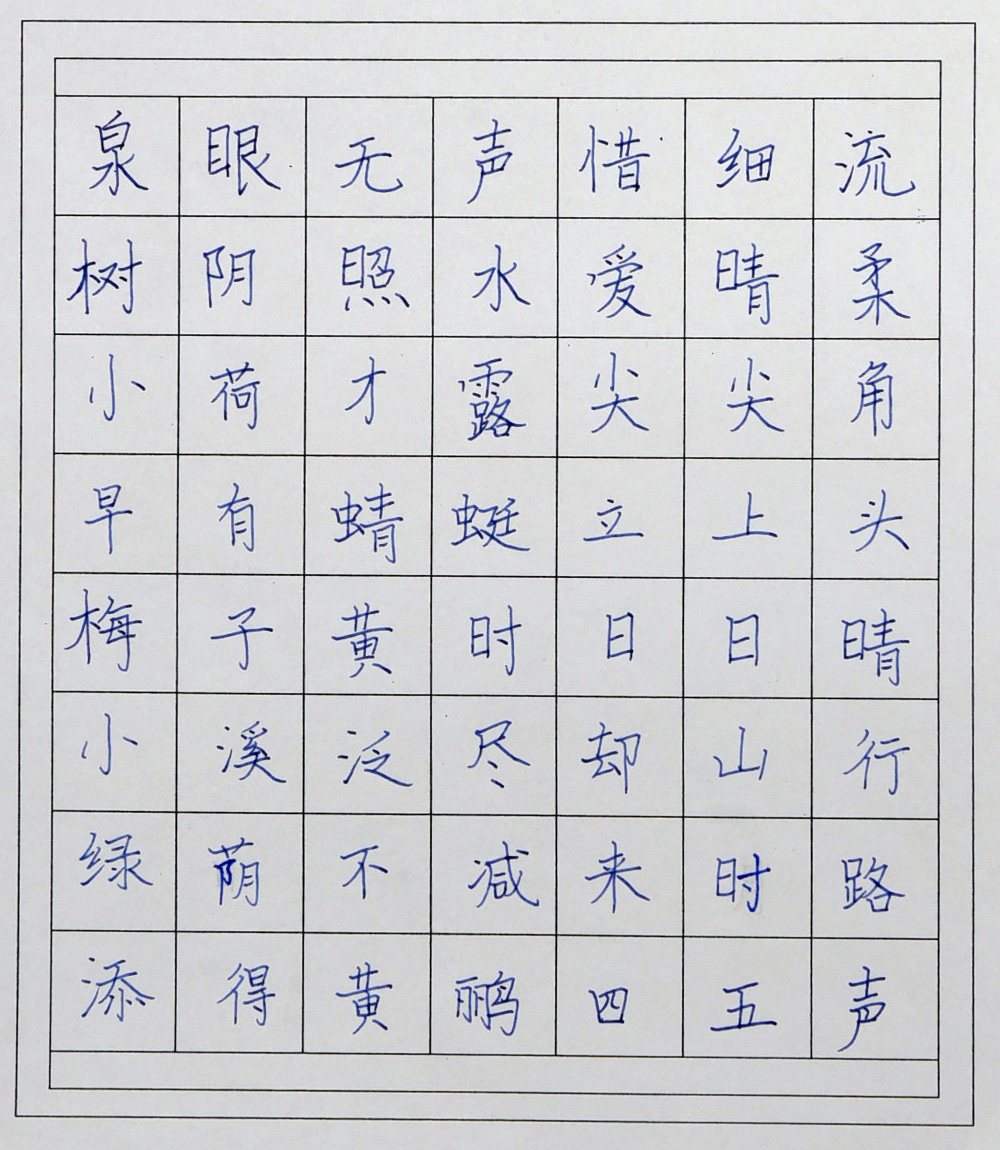 泉眼无声惜细流
树阴照水爱晴柔
小荷才露尖尖角
早有蜻蜓立上头
梅子黄时日日晴
小溪泛尽却山行
绿荫不减来时路
添得黄鹂四五声